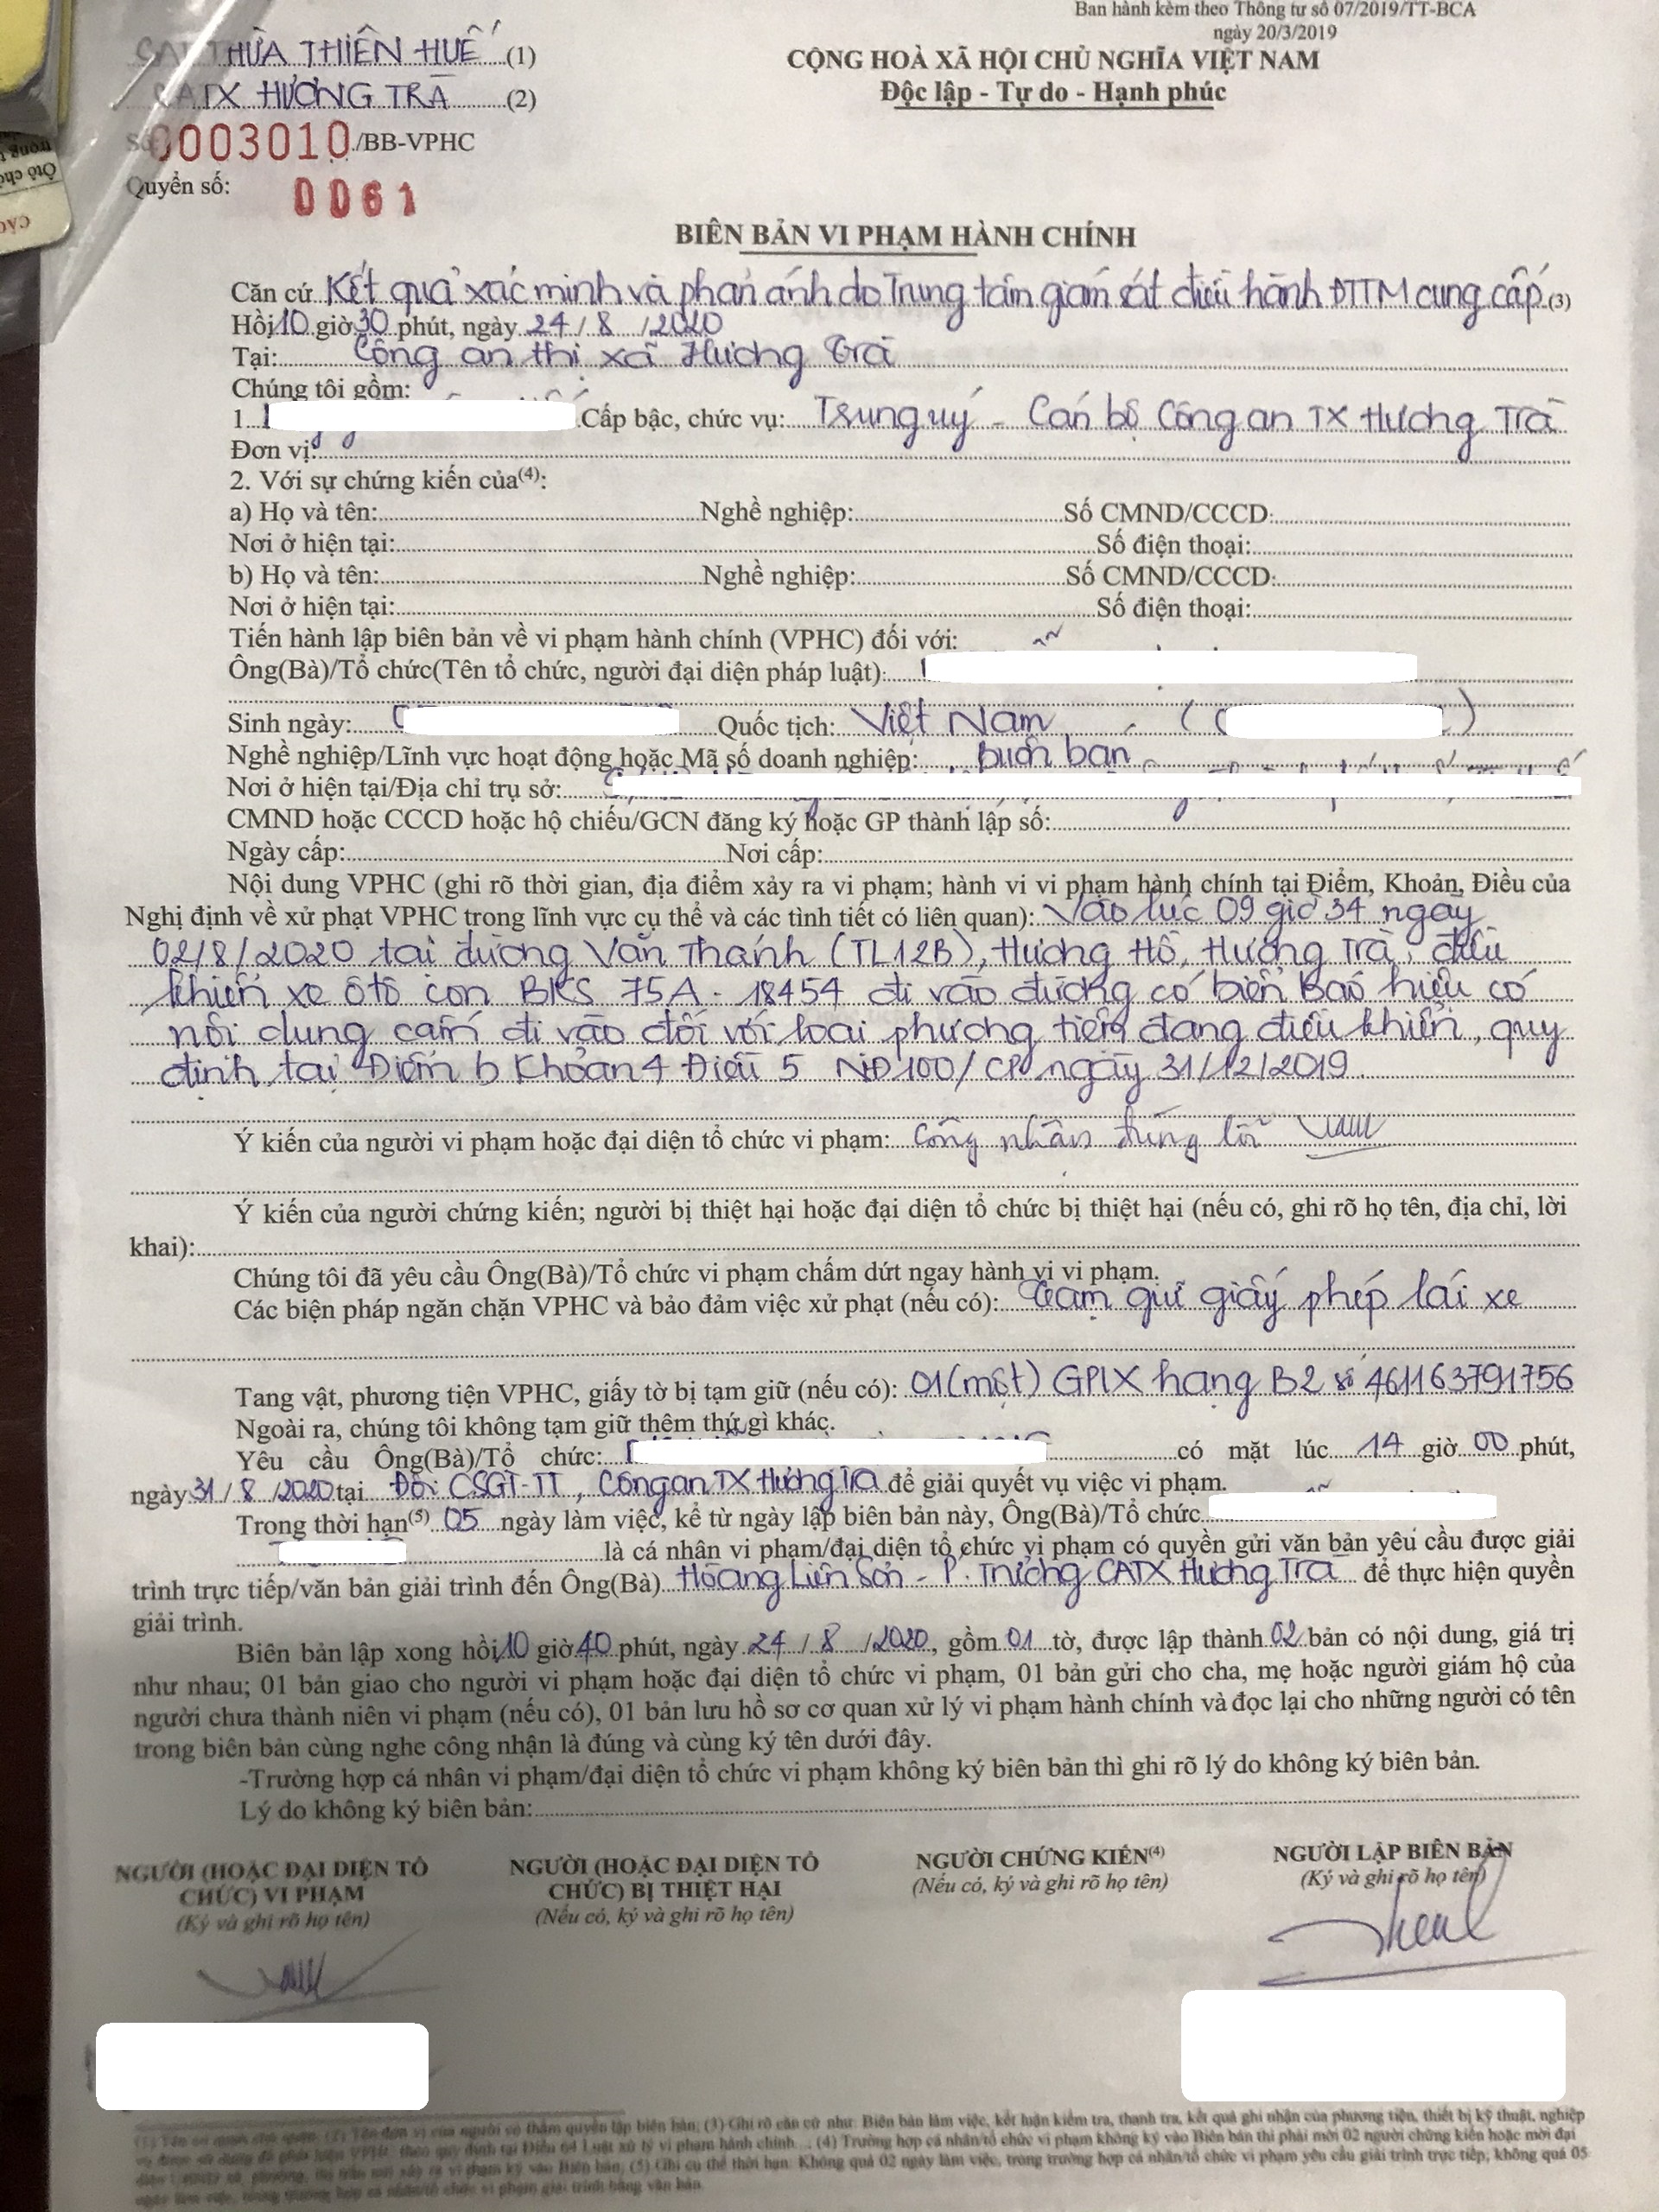 Ban hành kèm theo Thông tư số 07/2019/TT-BCA
ngày 20/3/2019
THỪA THIÊN HUẾ (1)
CATX HƯƠNG TRÀ (2)
CỘNG HOÀ XÃ HỘI CHỦ NGHĨA VIỆT NAM
Độc lập - Tự do - Hạnh phúc
Số 0003010 /BB-VPHC
Quyển số: 0061
BIÊN BẢN VI PHẠM HÀNH CHÍNH
Căn cứ Kết quả xác minh và phản ánh do Trung tâm giám sát điều hành ĐTTM cung cấp (3)
Hồi 10 giờ 30 phút, ngày 24 / 8 / 2020
Tại: Công an thị xã Hương Trà
Chúng tôi gồm:
1. Cấp bậc, chức vụ: Trung uý - Cán bộ Công an TX Hương Trà
Đơn vị:
2. Với sự chứng kiến của(4):
a) Họ và tên: Nghề nghiệp: Số CMND/CCCD:
Nơi ở hiện tại: Số điện thoại:
b) Họ và tên: Nghề nghiệp: Số CMND/CCCD:
Nơi ở hiện tại: Số điện thoại:
Tiến hành lập biên bản về vi phạm hành chính (VPHC) đối với:
Ông(Bà)/Tổ chức(Tên tổ chức, người đại diện pháp luật):
Sinh ngày: Quốc tịch: Việt Nam ( )
Nghề nghiệp/Lĩnh vực hoạt động hoặc Mã số doanh nghiệp: buôn bán
Nơi ở hiện tại/Địa chỉ trụ sở:
CMND hoặc CCCD hoặc hộ chiếu/GCN đăng ký hoặc GP thành lập số:
Ngày cấp: Nơi cấp:
Nội dung VPHC (ghi rõ thời gian, địa điểm xảy ra vi phạm; hành vi vi phạm hành chính tại Điểm, Khoản, Điều của
Nghị định về xử phạt VPHC trong lĩnh vực cụ thể và các tình tiết có liên quan): Vào lúc 09 giờ 34 ngày
02/8/2020 tại đường Văn Thánh (TL12B), Hương Hồ, Hương Trà, điều
khiển xe ôtô con BKS 75A - 18454 đi vào đường có biển báo hiệu có
nội dung cấm đi vào đối với loại phương tiện đang điều khiển, quy
định tại Điểm b Khoản 4 Điều 5 NĐ100/CP ngày 31/12/2019
Ý kiến của người vi phạm hoặc đại diện tổ chức vi phạm: Công nhận đúng lỗi
Ý kiến của người chứng kiến; người bị thiệt hại hoặc đại diện tổ chức bị thiệt hại (nếu có, ghi rõ họ tên, địa chỉ, lời
khai):
Chúng tôi đã yêu cầu Ông(Bà)/Tổ chức vi phạm chấm dứt ngay hành vi vi phạm.
Các biện pháp ngăn chặn VPHC và bảo đảm việc xử phạt (nếu có): Tạm giữ giấy phép lái xe
Tang vật, phương tiện VPHC, giấy tờ bị tạm giữ (nếu có): 01 (một) GPLX hạng B2 số 461163791756
Ngoài ra, chúng tôi không tạm giữ thêm thứ gì khác.
Yêu cầu Ông(Bà)/Tổ chức: có mặt lúc 14 giờ 00 phút,
ngày 31 / 8 / 2020 tại Đội CSGT-TT, Công an TX Hương Trà để giải quyết vụ việc vi phạm.
Trong thời hạn(5) 05 ngày làm việc, kể từ ngày lập biên bản này, Ông(Bà)/Tổ chức
là cá nhân vi phạm/đại diện tổ chức vi phạm có quyền gửi văn bản yêu cầu được giải
trình trực tiếp/văn bản giải trình đến Ông(Bà) Hoàng Liên Sơn - P. Trưởng CATX Hương Trà để thực hiện quyền
giải trình.
Biên bản lập xong hồi 10 giờ 40 phút, ngày 24 / 8 / 2020, gồm 01 tờ, được lập thành 02 bản có nội dung, giá trị
như nhau; 01 bản giao cho người vi phạm hoặc đại diện tổ chức vi phạm, 01 bản gửi cho cha, mẹ hoặc người giám hộ của
người chưa thành niên vi phạm (nếu có), 01 bản lưu hồ sơ cơ quan xử lý vi phạm hành chính và đọc lại cho những người có tên
trong biên bản cùng nghe công nhận là đúng và cùng ký tên dưới đây.
-Trường hợp cá nhân vi phạm/đại diện tổ chức vi phạm không ký biên bản thì ghi rõ lý do không ký biên bản.
Lý do không ký biên bản:
NGƯỜI (HOẶC ĐẠI DIỆN TỔ
CHỨC) VI PHẠM
(Ký và ghi rõ họ tên)
NGƯỜI (HOẶC ĐẠI DIỆN TỔ
CHỨC) BỊ THIỆT HẠI
(Nếu có, ký và ghi rõ họ tên)
NGƯỜI CHỨNG KIẾN(4)
(Nếu có, ký và ghi rõ họ tên)
NGƯỜI LẬP BIÊN BẢN
(Ký và ghi rõ họ tên)
(1) Tên cơ quan chủ quản; (2) Tên đơn vị của người có thẩm quyền lập biên bản; (3) Ghi rõ căn cứ như: Biên bản làm việc, kết luận kiểm tra, thanh tra, kết quả ghi nhận của phương tiện, thiết bị kỹ thuật, nghiệp
vụ được sử dụng để phát hiện VPHC theo quy định tại Điều 64 Luật xử lý vi phạm hành chính... (4) Trường hợp cá nhân/tổ chức vi phạm không ký vào Biên bản thì phải mời 02 người chứng kiến hoặc mời đại
vi phạm ký vào Biên bản; (5) Ghi cụ thể thời hạn: Không quá 02 ngày làm việc, trong trường hợp cá nhân/tổ chức vi phạm yêu cầu giải trình trực tiếp; không quá 05
vi phạm giải trình bằng văn bản.